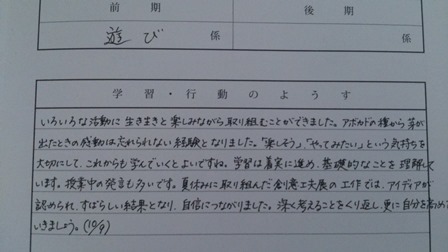 前期 後期
遊び 係 係
学習・行動のようす
いろいろな活動に生き生きと楽しみながら取り組むことができました。アボカドの種から芽が
出たときの感動は忘れられない経験となりました。「楽しそう」「やってみたい」という気持ちを
大切にして、これからも学んでいくとよいですね。学習は着実に進め、基礎的なことを理解して
います。授業中の発言も多いです。夏休みに取り組んだ創意工夫展の工作では、アイディアが
認められ、すばらしい結果となり、自信につながりました。深く考えることをくり返し、更に自分を高めて
いきましょう。(10/9)